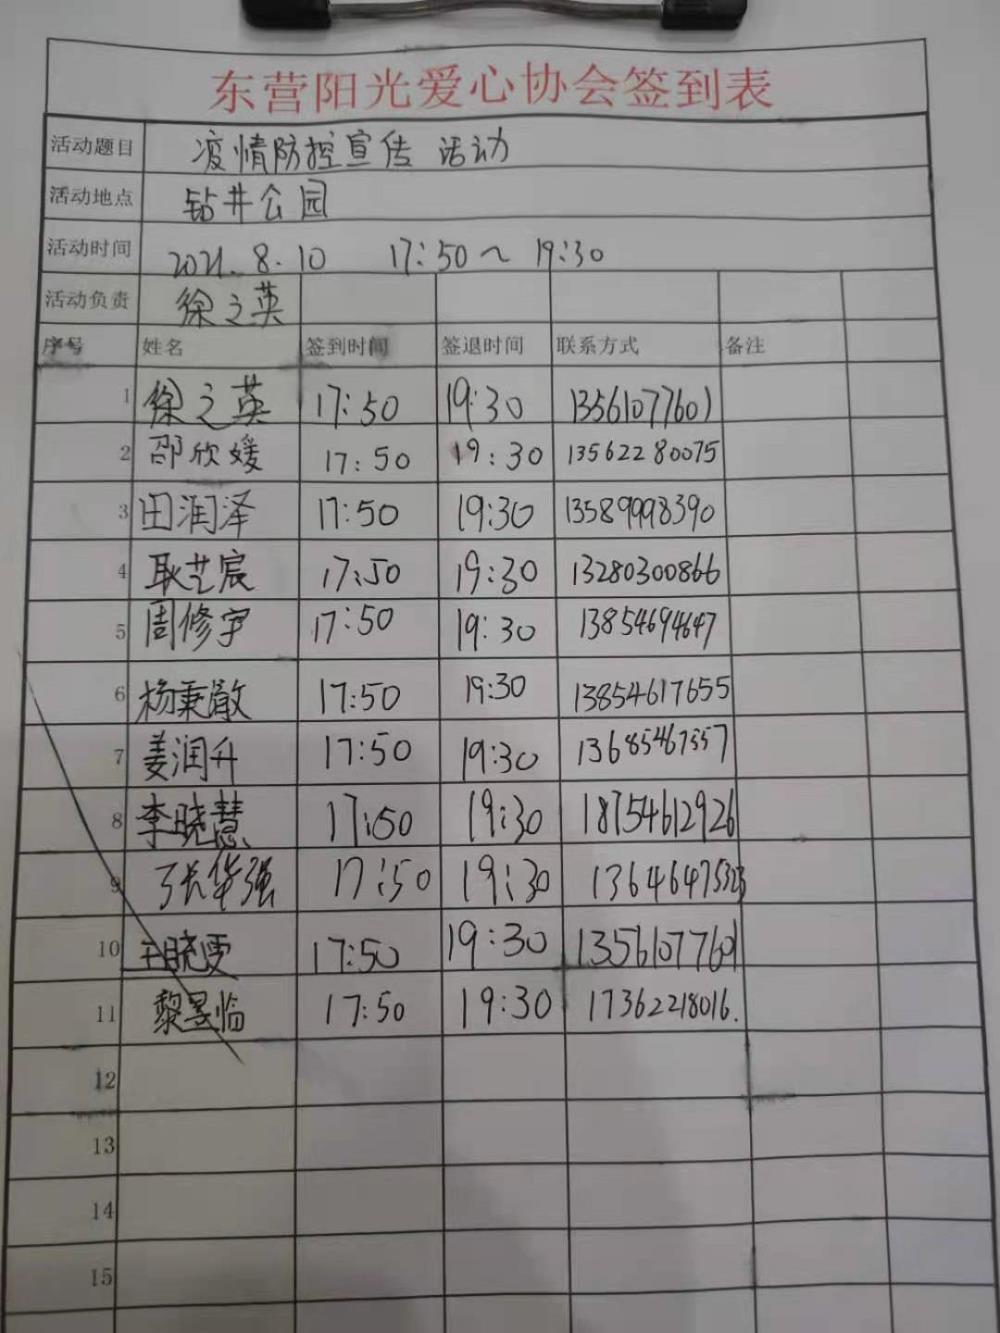 东营阳光爱心协会签到表
活动题目 疫情防控宣传 活动
活动地点 钻井公园
活动时间 2021.8.10 17:50～19:30
活动负责 徐之英
序号 姓名 签到时间 签退时间 联系方式 备注
1 徐之英 17:50 19:30 13561077601
2 邵欣媛 17:50 19:30 13562280075
3 田润泽 17:50 19:30 13589998390
4 耿艺宸 17:50 19:30 13280300866
5 周修宇 17:50 19:30 13854694647
6 杨秉 17:50 19:30 13854617655
7 姜润升 17:50 19:30 13685467557
8 李晓慧 17:50 19:30 18754612926
9 张华强 17:50 19:30
10 王晓雯 17:50 19:30 13561077601
11 黎昱临 17:50 19:30 17362218016.
12
13
14
15